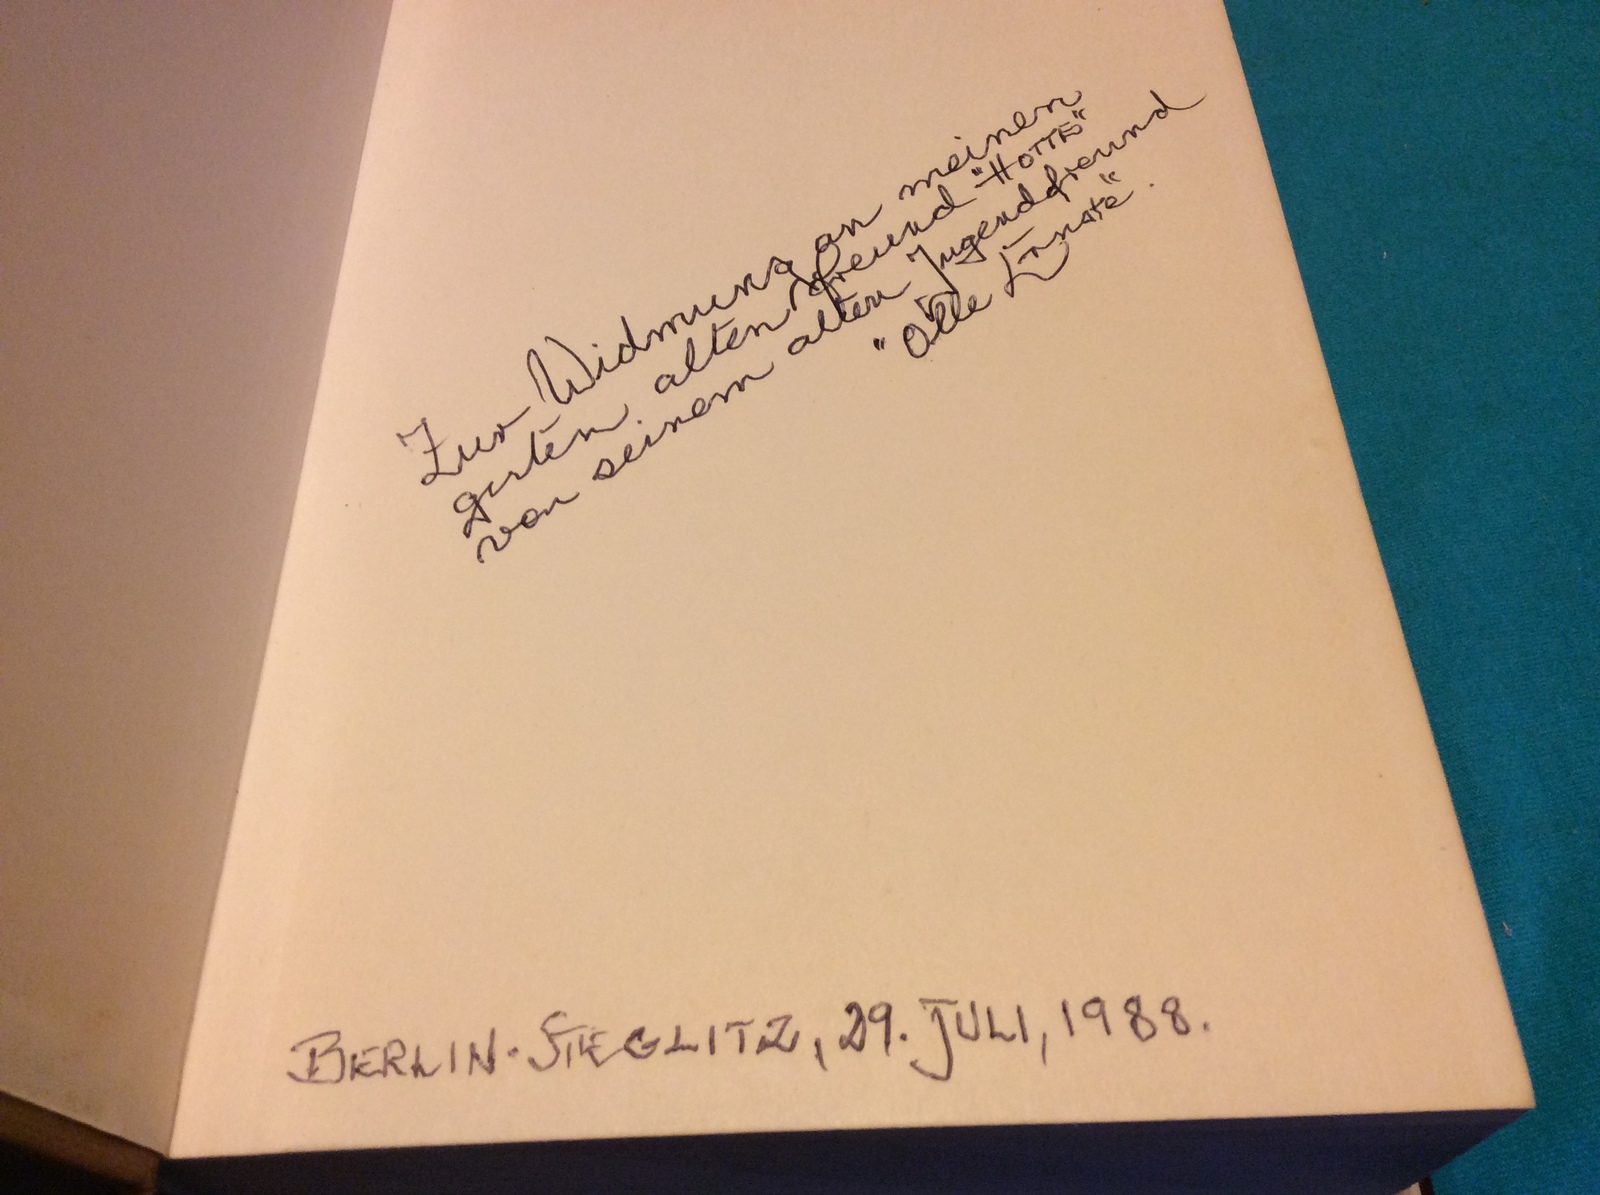 Zur Widmung an meinen
guten alten Freund "HOTTE"
von seinem alten Jugendfreund
"Olle
BERLIN-STEGLITZ, 29. JULI, 1988.